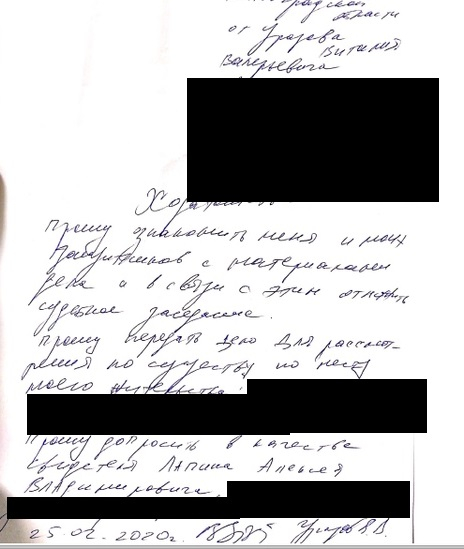 области
от Уразова
Виталия
Валерьевича
Ходатайство
Прошу ознакомить меня и моих
защитников с материалами
дела и в связи с этим отложить
судебное заседание.
Прошу передать дело для рассмот-
рения по существу по месту
моего жительства
Прошу допросить в качестве
свидетеля Лапина Алексея
Владимировича,
25.02.2020г.